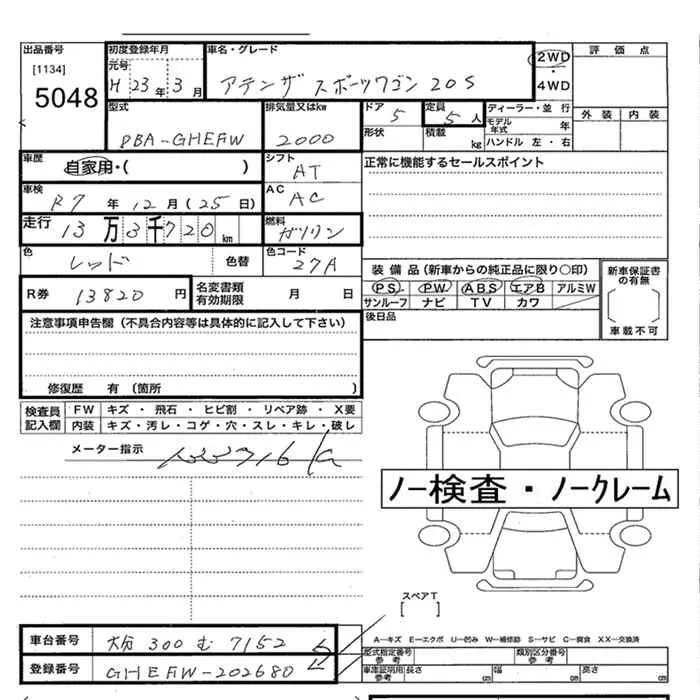 出品番号 初度登録年月 車名・グレード 2WD 評価点
[1134] 元号
5048 H 23年 3月 アテンザスポーツワゴン 20S ・ 4WD
型式 排気量又はkw ドア 定員 ディーラー・並 行 外装 内装
5 5人 モデル年式 年
DBA-GHEFW 2000 形状 積載 kg ハンドル 左・右
車歴 自家用・( ) シフト AT 正常に機能するセールスポイント
車検 R7年 12月 (25日) AC AC
走行 13万3千720km 燃料 ガソリン
色 レッド 色替 色コード 27A
装備品 (新車からの純正品に限り○印) 新車保証書の有無
R券 13820円 名変書類有効期限 月 日 PS PW ABS エアB アルミW
サンルーフ ナビ TV カワ
後日品 車載不可
注意事項申告欄 (不具合内容等は具体的に記入して下さい)
修復歴 有 (箇所 )
検査員記入欄 FW キズ ・ 飛石 ・ ヒビ割 ・ リペア跡 ・ X要
内装 キズ・汚レ・コゲ・穴・スレ・キレ・破レ
メーター指示
ノー検査・ノークレーム
スペアT
[ ]
車台番号 大分 300 む 7152 A-キズ E-エクボ U-凹み W-補修跡 S-サビ C-腐食 XX-交換済
型式指定番号 参考 類別区分番号 参考
登録番号 GHEFW-202680 車庫証明用 参考 長さ cm 幅 cm 高さ cm